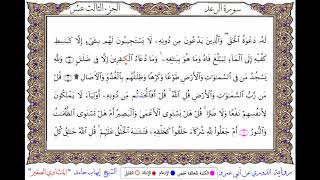 سورة الرعد
الجزء الثالث عشر
لَهُۥ دَعْوَةُ ٱلْحَقِّ وَٱلَّذِينَ يَدْعُونَ مِن دُونِهِۦ لَا يَسْتَجِيبُونَ لَهُم بِشَىْءٍ إِلَّا كَبَٰسِطِ
كَفَّيْهِ إِلَى ٱلْمَآءِ لِيَبْلُغَ فَاهُ وَمَا هُوَ بِبَٰلِغِهِۦ وَمَا دُعَآءُ ٱلْكَٰفِرِينَ إِلَّا فِى ضَلَٰلٍ وَلِلَّهِ
يَسْجُدُ مَن فِى ٱلسَّمَٰوَٰتِ وَٱلْأَرْضِ طَوْعًا وَكَرْهًا وَظِلَٰلُهُم بِٱلْغُدُوِّ وَٱلْءَاصَالِ قُلْ
مَن رَّبُّ ٱلسَّمَٰوَٰتِ وَٱلْأَرْضِ قُلِ ٱللَّهُ قُلْ أَفَٱتَّخَذتُّم مِن دُونِهِۦٓ أَوْلِيَآءَ لَا يَمْلِكُونَ
لِأَنفُسِهِمْ نَفْعًا وَلَا ضَرًّا قُلْ هَلْ يَسْتَوِى ٱلْأَعْمَىٰ وَٱلْبَصِيرُ أَمْ هَلْ تَسْتَوِى ٱلظُّلُمَٰتُ
وَٱلنُّورُ أَمْ جَعَلُوا۟ لِلَّهِ شُرَكَآءَ خَلَقُوا۟ كَخَلْقِهِۦ فَتَشَٰبَهَ ٱلْخَلْقُ عَلَيْهِمْ قُلِ ٱللَّهُ خَٰلِقُ كُلِّ
رواية الدوري عن أبي عمرو
الشيخ إيهاب حامد "المنشاوي الصغير"